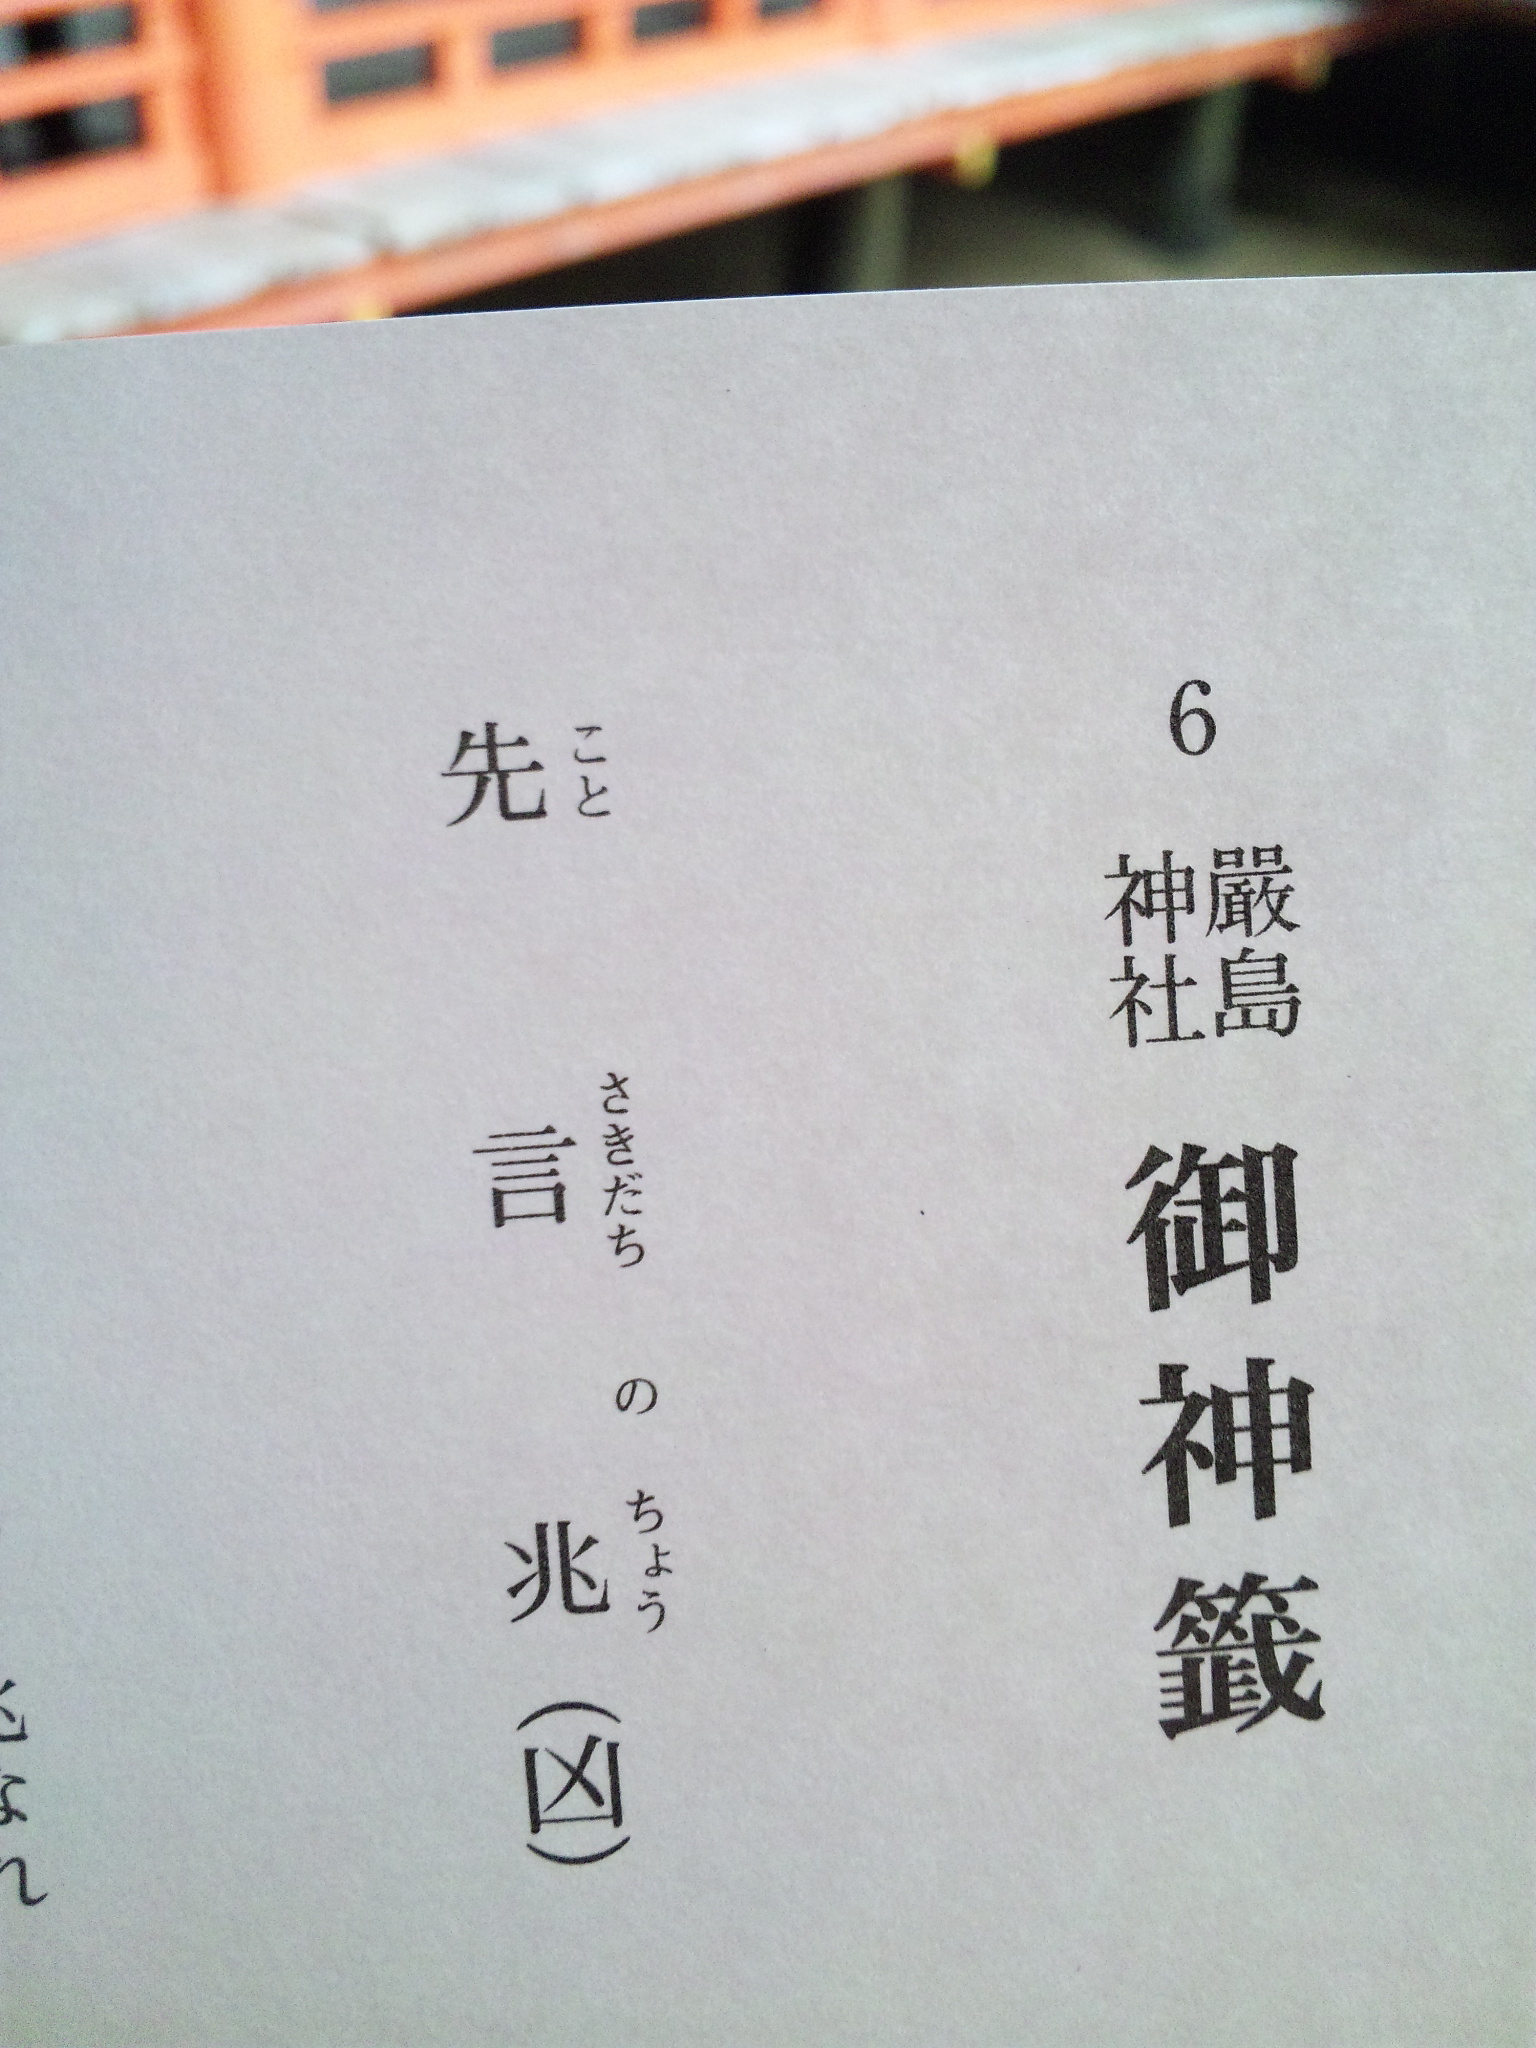 6 嚴島神社 御神籤
先言の兆(凶)
こと さきだち の ちょう
なれ